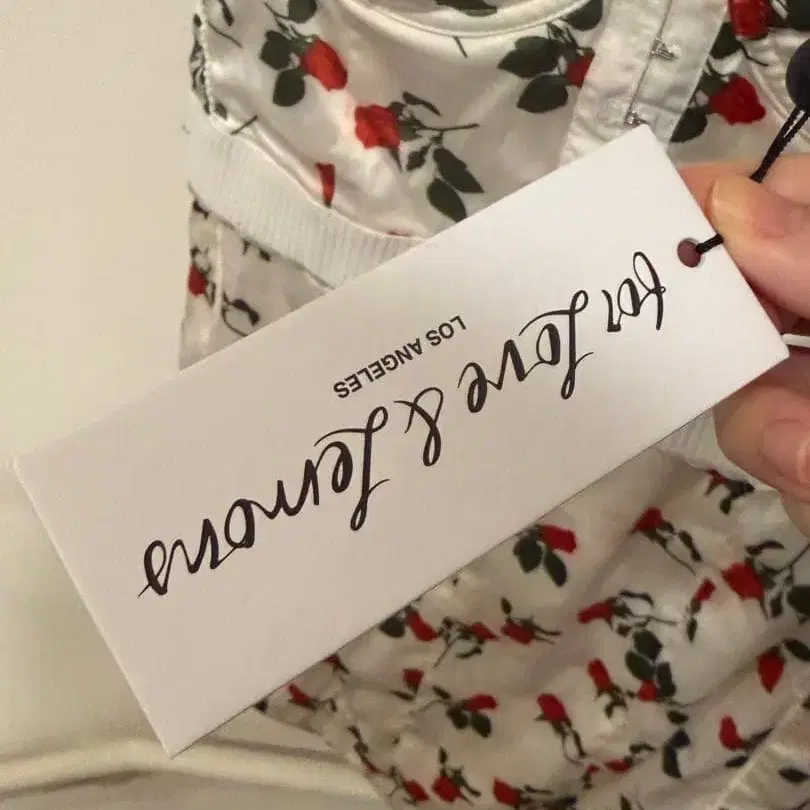 for Love & Lemons
LOS ANGELES